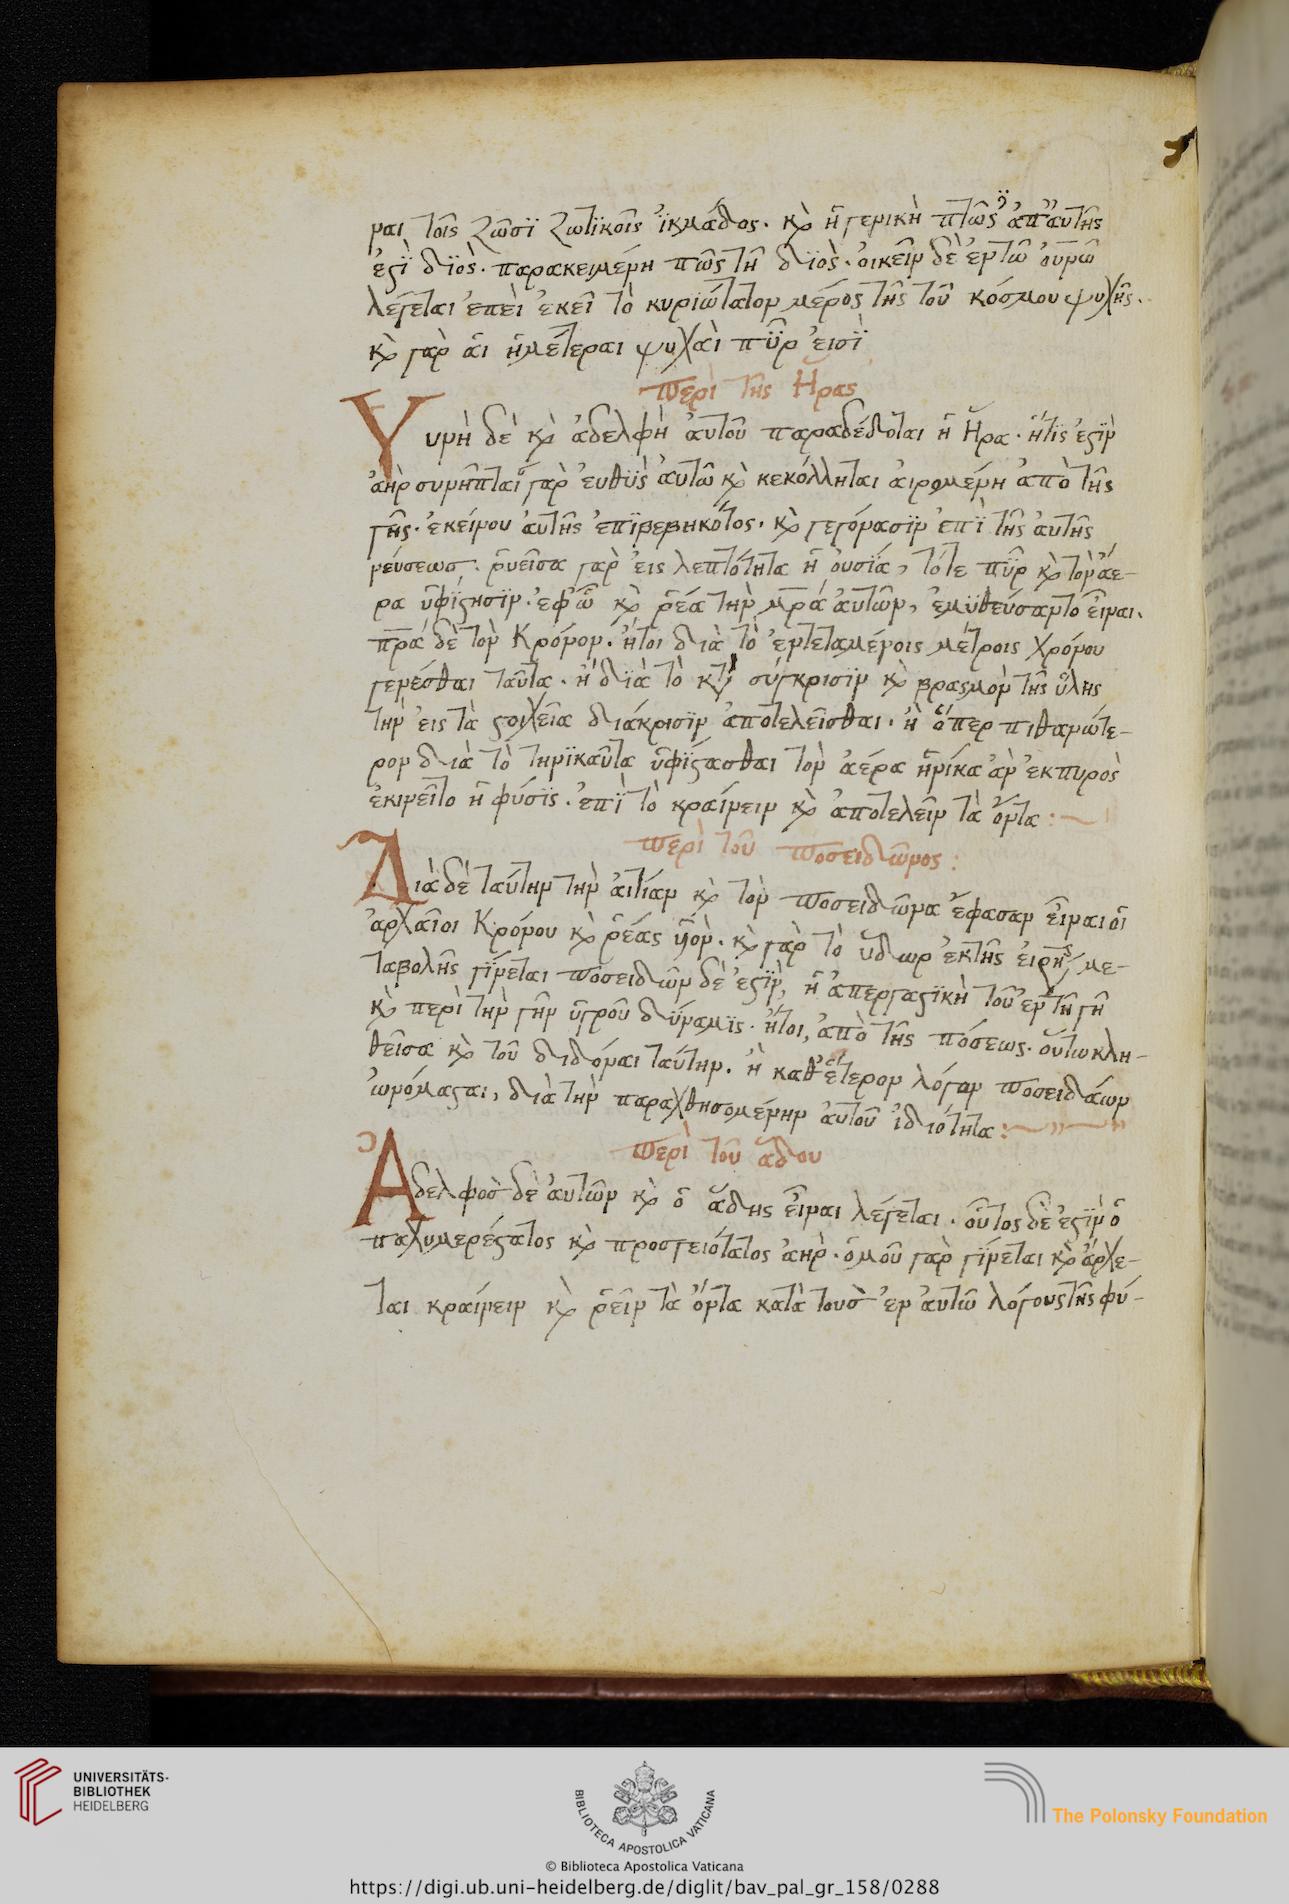 ναι τοῖς ζῶσϊ ζωτϊκοῖς ἰκμάδος. κ̀ ἡ γενικὴ πτῶς ἀπ' αὐτῆς
ἐϛὶ δϊὸς. παρακειμένη πῶς τῆ δϊὸς. οἰκεῖν δὲ ἐν τῶ οὐνῶ
λέγεται ἐπεὶ ἐκεῖ τὸ κυριώτατον μέρος τῆς τοῦ κόσμου ψυχῆς.
κ̀ γὰρ ἁι ἡμέτεραι ψυχαὶ πῦρ εἰσῒ
περὶ τῆς Ἥρας
Υυνὴ δὲ κ̀ ἀδελφὴ ἀυτοῦ παραδέδοται ἡ Ἥρα. ἥτις ἐϛῒν
ἀὴρ συνῆπται γὰρ ἐυθῢς ἀυτῶ κ̀ κεκόλληται ἀιρομένη ἀπὸ τῆς
γῆς. ἐκείνου ἀυτῆς ἐπϊβεβηκότος. κ̀ γεγόνασϊν ἐπῒ τῆς ἀυτῆς
ρέυσεως. ῥυεῖσα γὰρ ἐις λεπτότητα ἡ ὀυσϊά, τότε πῦρ κ̀ τὸν ἀέ-
ρα ὑφϊϛησϊν. ἐφ' ὧ κ̀ ῥέα τὴν μρ̅ά ἀυτῶν, ἐμϋθεύσαντο εἶναι.
πρ̅ά δὲ τὸν Κρόνον. ἤτοι διὰ τὸ ἐντεταμένοις μέτροις χρόνου
γενέσθαι ταῦτα. ἢ δϊὰ τὸ κτ̀ σύγκρισϊν κ̀ βρασμὸν τῆς ὕλης
τὴν ἐις τὰ ϛοιχεῖα διάκρισϊν ἀποτελεῖσθαι. ἢ ὅπερ πιθανώτε-
ρον διὰ τὸ τηνϊκαῦτα ὑφϊϛασθαι τὸν ἀέρα ἡνίκα ἀν ἐκ πυρὸς
ἐκινεῖτο ἡ φύσϊς. ἐπῒ τὸ κραίνειν κ̀ ἀποτελεῖν τὰ ὄντα:~
περὶ τοῦ ποσειδῶνος:
Διὰ δὲ ταύτην τὴν ἀιτίαν κ̀ τὸν ποσειδῶνα ἔφασαν εἶναι ὁι
ἀρχαῖοι Κρόνου κ̀ ῥέας ὑϊὸν. κ̀ γὰρ τὸ ὕδωρ ἐκ τῆς ἐιρη με-
ταβολῆς γΐνεται ποσειδῶν δὲ ἐϛῒν, ἡ ἀπεργαϛϊκὴ τοῦ ἐν τῆ γῆ
κ̀ περὶ τὴν γῆν ὑγροῦ δΰναμϊς. ἤτοι, ἀπὸ τῆς πόσεως. οὕτω κλη-
θεῖσα κ̀ τοῦ διδόναι ταύτην. ἢ καθ' ἕτερον λόγον ποσειδάων
ὠνόμαϛαι, διὰ τὴν παραχθησομένην ἀυτοῦ ἰδιότητα:~
περὶ τοῦ ἅδου
Αδελφοσ δὲ ἀυτῶν κ̀ ὁ ἅδης εἶναι λέγεται. οὗτος δὲ ἐϛῒν ὁ
παχυμερέϛατος κ̀ προσγειότατος ἀὴρ. ὁμοῦ γὰρ γΐνεται κ̀ ἄρχε-
ται κραίνειν κ̀ ῥεῖν τὰ ὄντα κατὰ τουσ ἐν ἀυτῶ λόγους τῆς φύ-
UNIVERSITÄTS-
BIBLIOTHEK
HEIDELBERG
BIBLIOTECA APOSTOLICA VATICANA
The Polonsky Foundation
© Biblioteca Apostolica Vaticana
https://digi.ub.uni-heidelberg.de/diglit/bav_pal_gr_158/0288